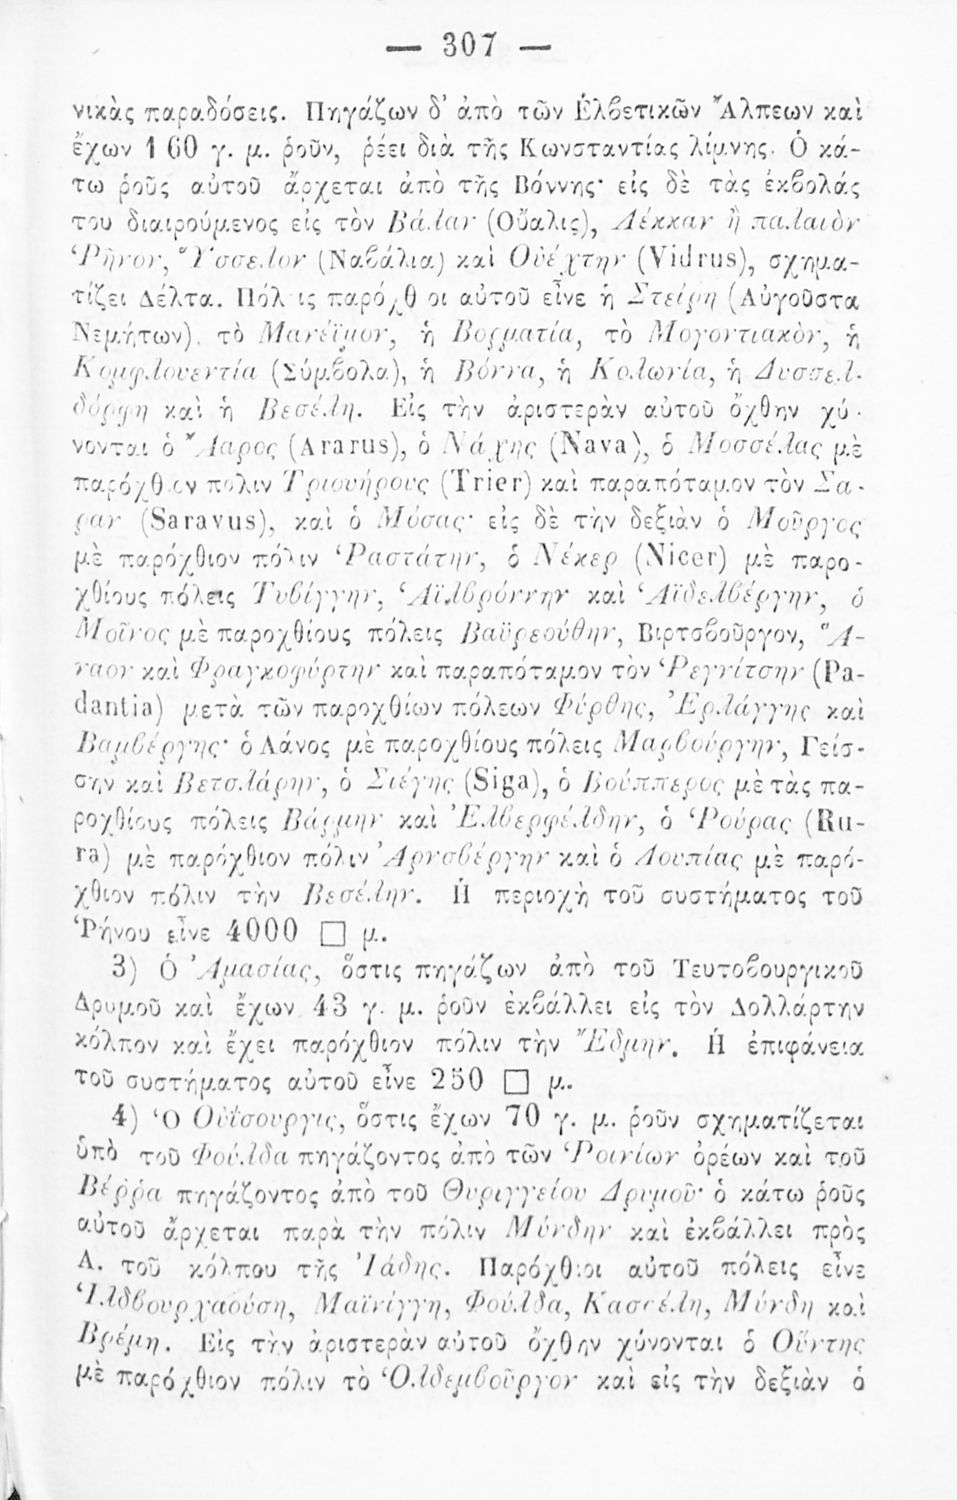 — 307 —
νικὰς παραδόσεις. Πηγάζων δ' ἀπὸ τῶν Ἑλβετικῶν Ἄλπεων καὶ
ἔχων 160 γ. μ. ῥοῦν, ῥέει διὰ τῆς Κωνσταντίας λίμνης. Ὁ κά-
τω ῥοῦς αὐτοῦ ἄρχεται ἀπὸ τῆς Βόννης· εἰς δὲ τὰς ἐκβολάς
του διαιρούμενος εἰς τὸν Βάλαν (Οὔαλις), Λέκκαν ἢ παλαιὸν
Ῥῆνον, Ὕσσελον (Ναβάλια) καὶ Οὐέχτην (Vidrus), σχημα-
τίζει Δέλτα. Πόλις παρόχθοι αὐτοῦ εἶνε ἡ Στείρη (Αὐγοῦστα
Νεμήτων), τὸ Μανέϊμον, ἡ Βορματία, τὸ Μογοντιακὸν, ἡ
Κομφλουεντία (Σύμβολα), ἡ Βόννα, ἡ Κολωνία, ἡ Δυσσελ-
δόρφη καὶ ἡ Βεσέλη. Εἰς τὴν ἀριστερὰν αὐτοῦ ὄχθην χύ-
νονται ὁ Ἄαρος (Ararus), ὁ Νάχης (Nava), ὁ Μοσσέλας μὲ
παρόχθιον πόλιν Τριουήρους (Trier) καὶ παραπόταμον τὸν Σα-
ραν (Saravus), καὶ ὁ Μόσας· εἰς δὲ τὴν δεξιὰν ὁ Μοῦργος
μὲ παρόχθιον πόλιν Ῥαστάτην, ὁ Νέκερ (Nicer) μὲ παρο-
χθίους πόλεις Τυβίγγην, Ἁϊλβρόννην καὶ Ἁϊδελβέργην, ὁ
Μοῖνος μὲ παροχθίους πόλεις Βαϋρεούθην, Βιρτσβοῦργον, Ἅ-
ναον καὶ Φραγκοφύρτην καὶ παραπόταμον τὸν Ῥεγνίτσην (Ra-
dantia) μετὰ τῶν παροχθίων πόλεων Φύρθης, Ἐρλάγγης καὶ
Βαμβέργης· ὁ Λάνος μὲ παροχθίους πόλεις Μαρβούργην, Γείσ-
σην καὶ Βετσλάρην, ὁ Σιέγης (Siga), ὁ Βούππερος μὲ τὰς πα-
ροχθίους πόλεις Βάρμην καὶ Ἐλβερφέλδην, ὁ Ῥούρας (Ru-
ra) μὲ παρόχθιον πόλιν Ἀρνσβέργην καὶ ὁ Λουπίας μὲ παρό-
χθιον πόλιν τὴν Βεσέλην. Ἡ περιοχὴ τοῦ συστήματος τοῦ
Ῥήνου εἶνε 4000 □ μ.
3) Ὁ Ἀμασίας, ὅστις πηγάζων ἀπὸ τοῦ Τευτοβουργικοῦ
Δρυμοῦ καὶ ἔχων 43 γ. μ. ῥοῦν ἐκβάλλει εἰς τὸν Δολλάρτην
κόλπον καὶ ἔχει παρόχθιον πόλιν τὴν Ἔδμην. Ἡ ἐπιφάνεια
τοῦ συστήματος αὐτοῦ εἶνε 250 □ μ.
4) Ὁ Οὐΐσουργις, ὅστις ἔχων 70 γ. μ. ῥοῦν σχηματίζεται
ὑπὸ τοῦ Φούλδα πηγάζοντος ἀπὸ τῶν Ῥοινίων ὀρέων καὶ τοῦ
Βέῤῥα πηγάζοντος ἀπὸ τοῦ Θυριγγείου Δρυμοῦ· ὁ κάτω ῥοῦς
αὐτοῦ ἄρχεται παρὰ τὴν πόλιν Μύνδην καὶ ἐκβάλλει πρὸς
Α. τοῦ κόλπου τῆς Ἰάδης. Παρόχθιοι αὐτοῦ πόλεις εἶνε
Ἱλδβουρχαούση, Μαϊνίγγη, Φούλδα, Κασσέλη, Μύνδη καὶ
Βρέμη. Εἰς τὴν ἀριστερὰν αὐτοῦ ὄχθην χύνονται ὁ Οὕντης
μὲ παρόχθιον πόλιν τὸ Ὀλδεμβοῦργον καὶ εἰς τὴν δεξιὰν ὁ